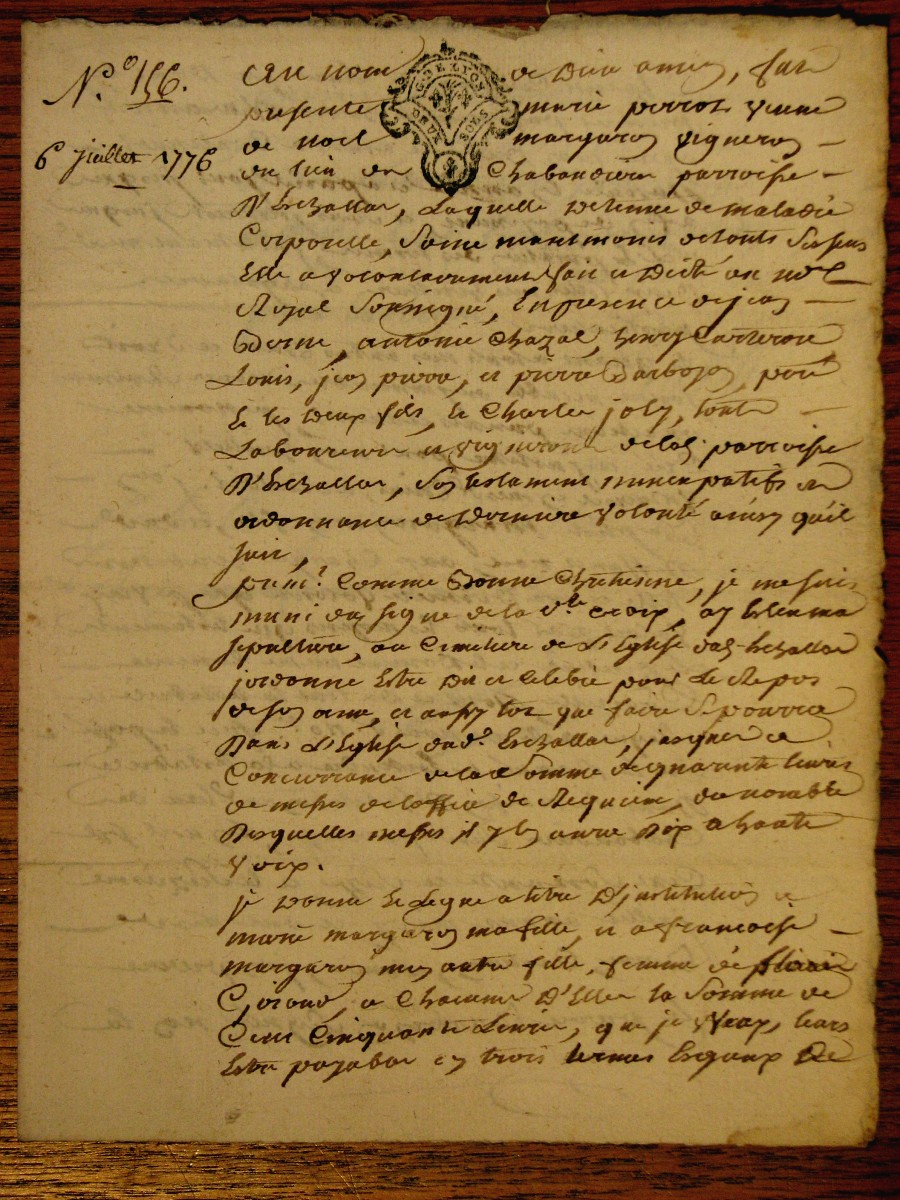 N.º 156.
6e juillet 1776
au nom de Dieu amen, fut
presente marie perrot veuve
de noel margaron vigneron
du lieu de Chabaudiere parroisse
D'Echallas, Laquelle detenue de maladie
Corporelle, Saine neantmoins de touts ses sens
Elle a volontairement fait et Dicté au no.re
Royal Soussigné, En presence de jean
Bonne, antoine Chazal, henry
Louis, jean pierre, et pierre Barbojon, pere
et les deux fils, et Charles joly, touts
Laboureurs et vignerons de lad. parroisse
D'Echallas, son testament nuncupatif et
ordonnance de derniere volonté ainsy qu'il
suit,
prem.t Comme Bonne Chretienne, je me suis
muni du signe de la s.te croix, ay Eslu ma
sepulture, au Cimetiere de L'Eglise dud. Echallas
j'ordonne Estre Dit et Celebré pour Le Repos
de son ame, et aussy tot que faire se pourra
Dans L'Eglise dud. Echallas, jusques a
Concurrance de la Somme de quarante livres
de messes de l'office de Requiem, du nombre
Desquelles messes il y En aura Dix a haute
voix.
je Donne et Legue a titre D'institution a
marie margaron ma fille, et a francoise
margaron mon autre fille, femme de
Giraud, a Chacune D'Elles la Somme de
Cent Cinquante Livres, que je veux, leurs
Estre payables en trois termes Esgaux de